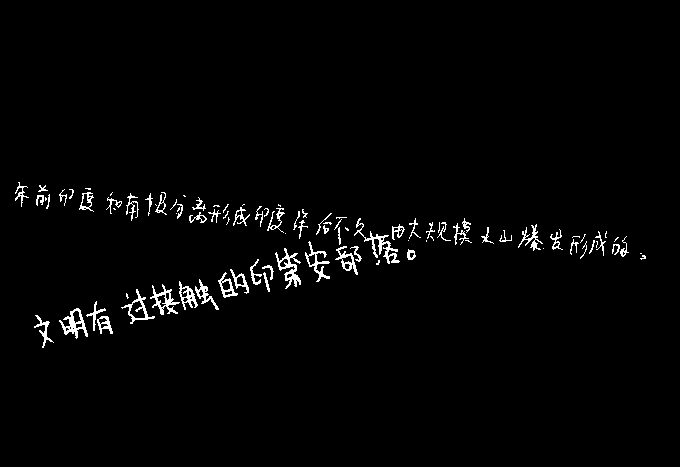 年前印度和南极分离形成印度洋后不久,由大规模火山爆发形成的。
文明有过接触的印第安部落。